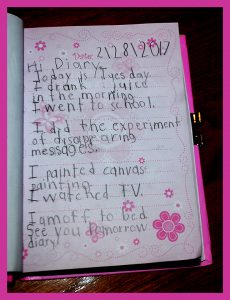 Date: 2/28/2017
Hi Diary
Today is Tuesday
I drank juice
in the morning
I went to school.
I did the experiment
of disappearing
messages.
I painted canvas
painting
I watched TV.
I am off to bed
See you tomorrow
diary!